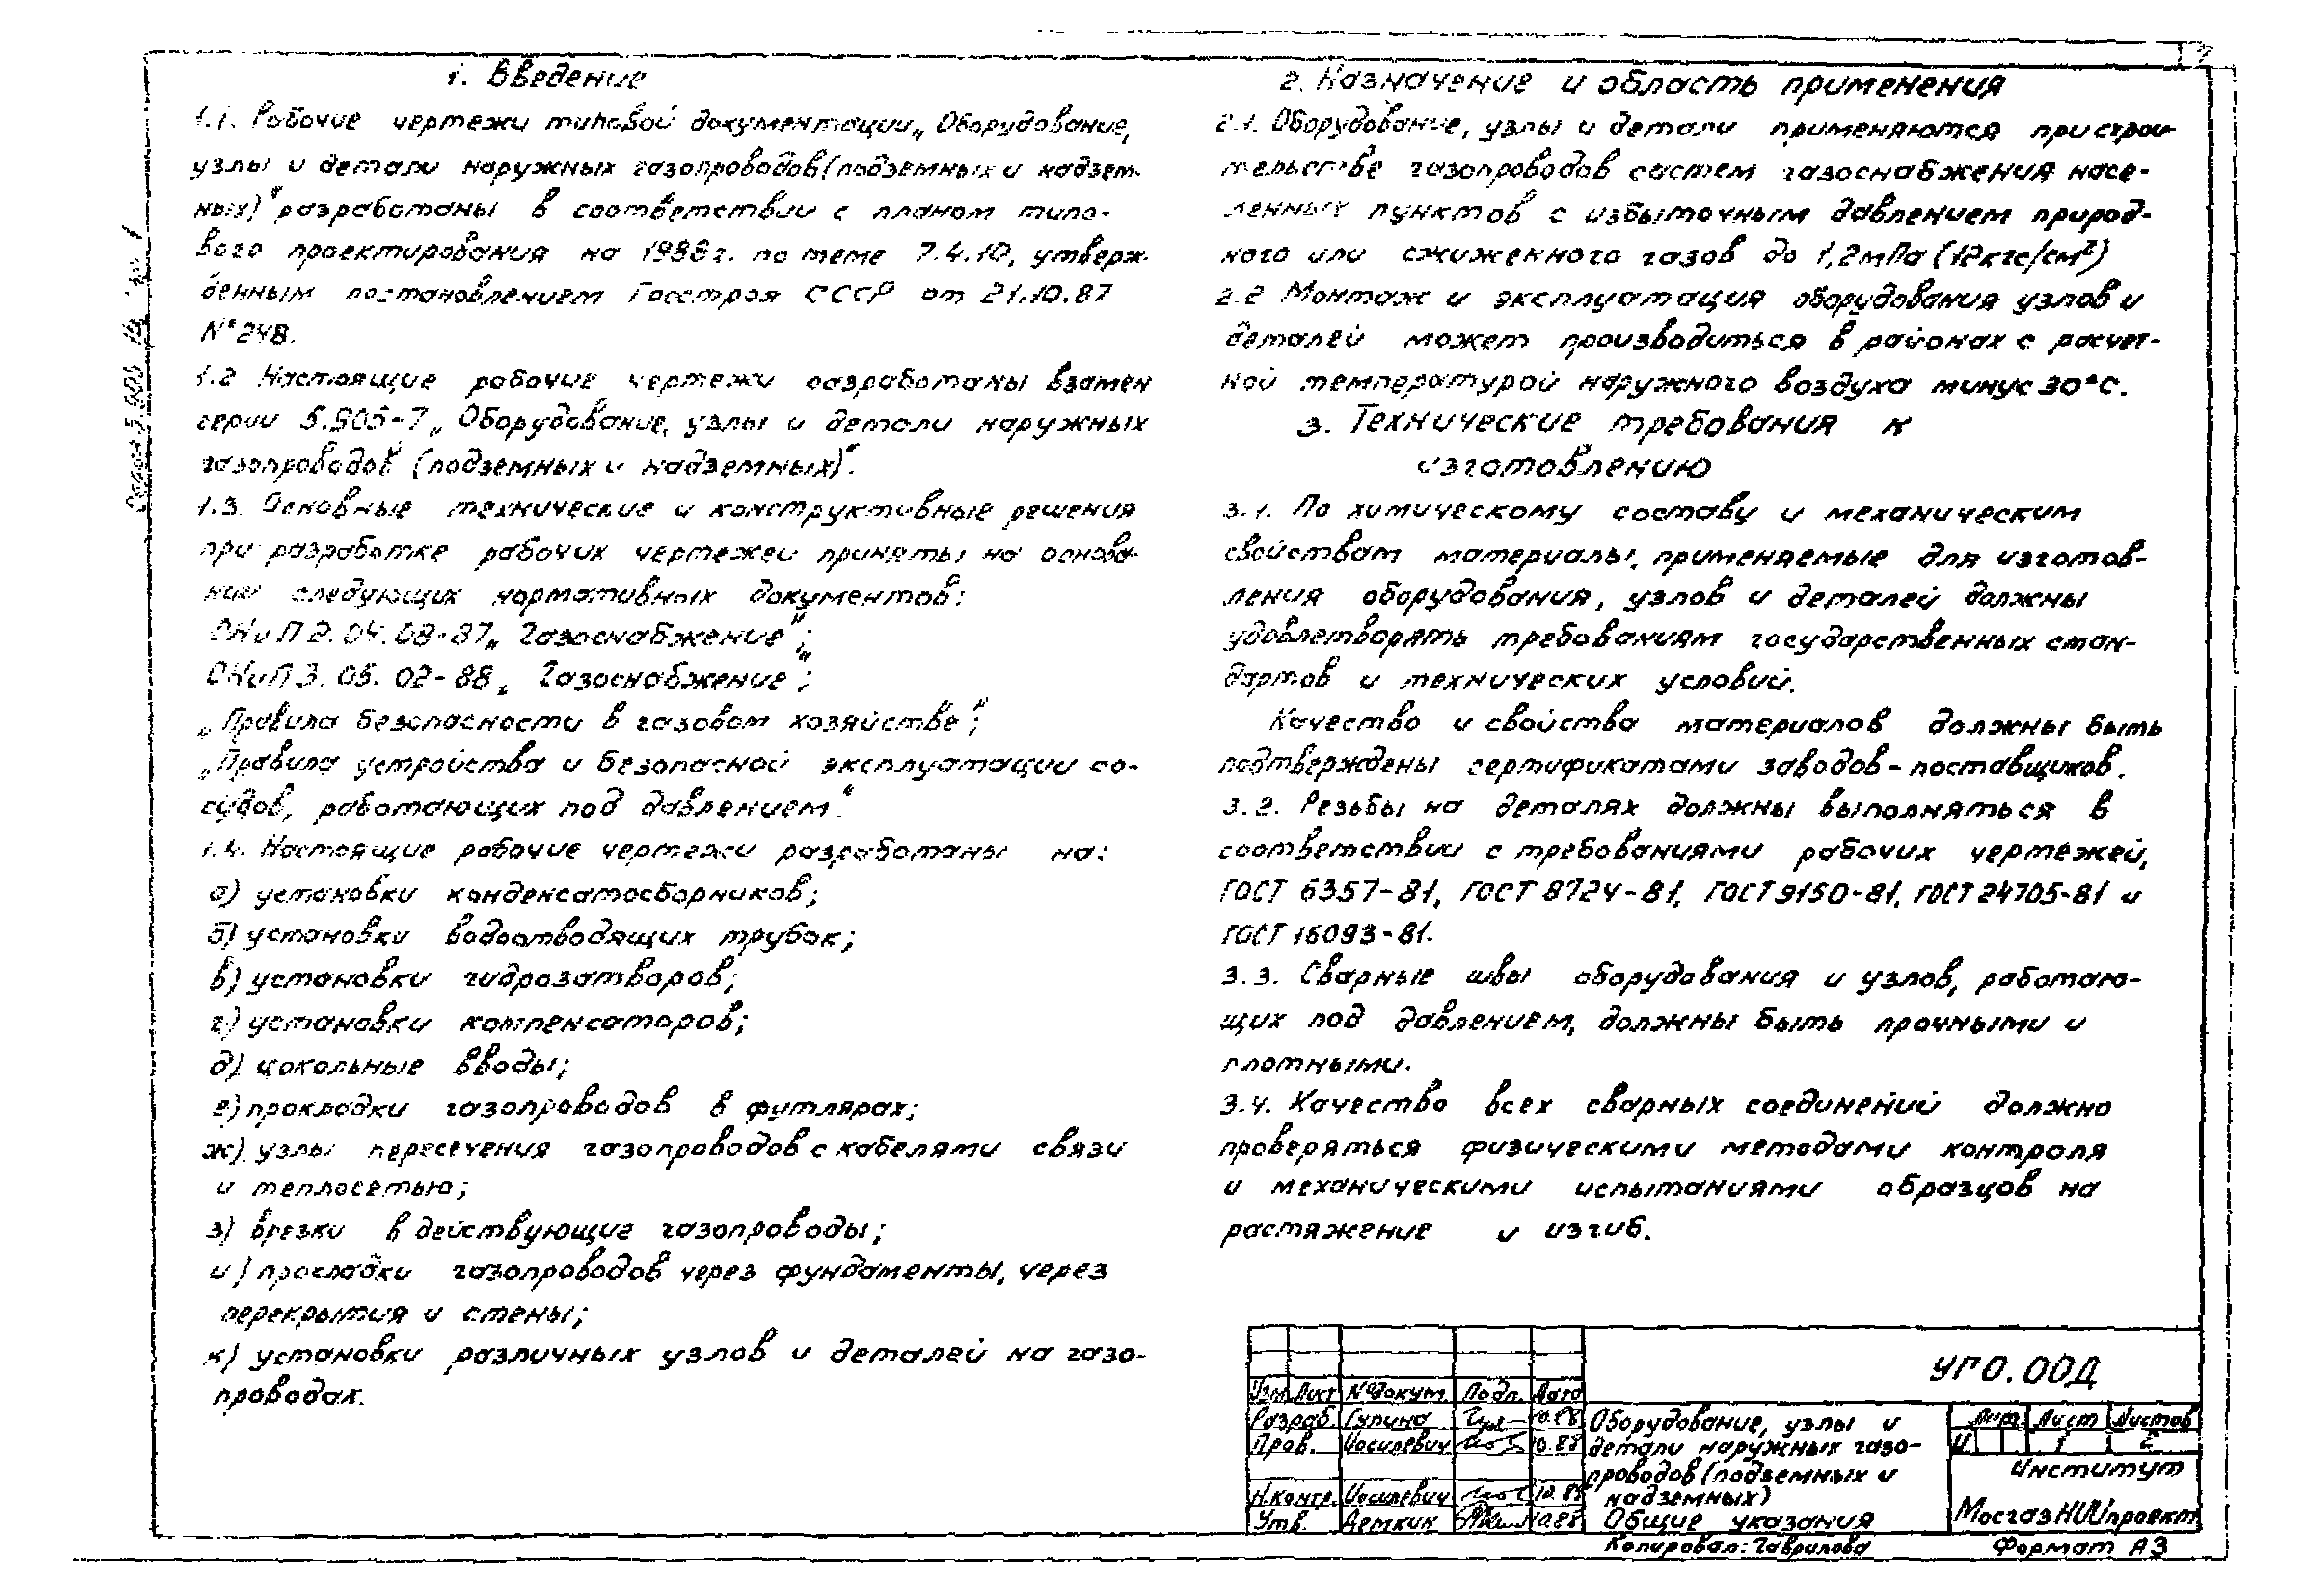 1. Введение
1.1. Рабочие чертежи типовой документации „Оборудование,
узлы и детали наружных газопроводов (подземных и надзем-
ных)" разработаны в соответствии с планом типо-
вого проектирования на 1988г. по теме 7.4.10, утверж-
денным постановлением Госстроя СССР от 21.10.87
№248.
1.2 Настоящие рабочие чертежи разработаны взамен
серии 5.905-7 „Оборудование, узлы и детали наружных
газопроводов (подземных и надземных)".
1.3. Основные технические и конструктивные решения
при разработке рабочих чертежей приняты на основа-
нии следующих нормативных документов:
СНиП 2.04.08-87 „Газоснабжение";
СНиП 3.05.02-88 „Газоснабжение";
„Правила безопасности в газовом хозяйстве";
„Правила устройства и безопасной эксплуатации со-
судов, работающих под давлением".
1.4. Настоящие рабочие чертежи разработаны на:
а) установки конденсатосборников;
б) установки водоотводящих трубок;
в) установки гидрозатворов;
г) установки компенсаторов;
д) цокольные вводы;
е) прокладки газопроводов в футлярах;
ж) узлы пересечения газопроводов с кабелями связи
и теплосетью;
з) врезки в действующие газопроводы;
и) прокладки газопроводов через фундаменты, через
перекрытия и стены;
к) установки различных узлов и деталей на газо-
проводах.
2. Назначение и область применения
2.1. Оборудование, узлы и детали применяются при строи-
тельстве газопроводов систем газоснабжения насе-
ленных пунктов с избыточным давлением природ-
ного или сжиженного газов до 1,2мПа (12кгс/см²)
2.2 Монтаж и эксплуатация оборудования узлов и
деталей может производиться в районах с расчет-
ной температурой наружного воздуха минус 30°С.
3. Технические требования к
изготовлению
3.1. По химическому составу и механическим
свойствам материалы, применяемые для изготов-
ления оборудования, узлов и деталей должны
удовлетворять требованиям государственных стан-
дартов и технических условий.
Качество и свойства материалов должны быть
подтверждены сертификатами заводов-поставщиков.
3.2. Резьбы на деталях должны выполняться в
соответствии с требованиями рабочих чертежей,
ГОСТ 6357-81, ГОСТ 8724-81, ГОСТ 9150-81, ГОСТ 24705-81 и
ГОСТ 16093-81.
3.3. Сварные швы оборудования и узлов, работаю-
щих под давлением, должны быть прочными и
плотными.
3.4. Качество всех сварных соединений должно
проверяться физическими методами контроля
и механическими испытаниями образцов на
растяжение и изгиб.
УГ0.00Д
Изм. Лист №докум. Подп. Дата
Разраб. Гулина 10.88
Пров. Иосилевич 10.88
Н.контр. Иосилевич 10.88
Утв. Деткин 10.88
Оборудование, узлы и
детали наружных газо-
проводов (подземных и
надземных)
Общие указания
Лит. Лист Листов
И 1 2
Институт
МосгазНИИпроект
Копировал: Гаврилова Формат А3